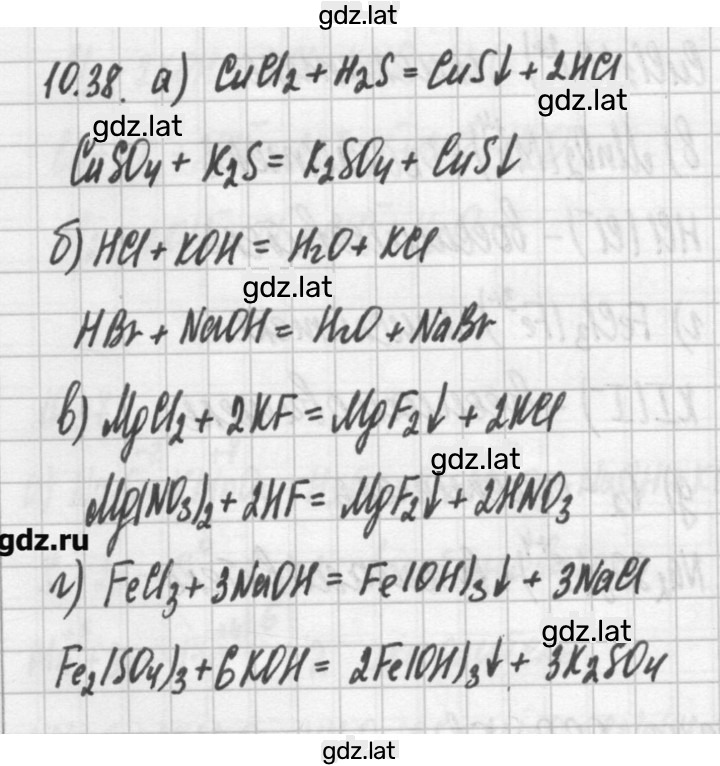 gdz.lat
10.38. а) CuCl₂ + H₂S = CuS↓ + 2HCl
gdz.lat
gdz.lat
CuSO₄ + K₂S = K₂SO₄ + CuS↓
б) HCl + KOH = H₂O + KCl
gdz.lat
HBr + NaOH = H₂O + NaBr
в) MgCl₂ + 2KF = MgF₂↓ + 2KCl
gdz.lat
Mg(NO₃)₂ + 2HF = MgF₂↓ + 2HNO₃
gdz.ru
г) FeCl₃ + 3NaOH = Fe(OH)₃↓ + 3NaCl
gdz.lat
Fe₂(SO₄)₃ + 6KOH = 2Fe(OH)₃↓ + 3K₂SO₄
gdz.lat